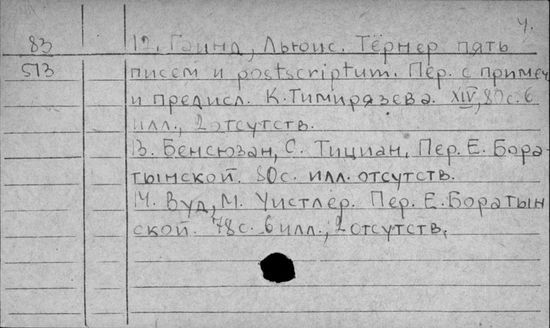 4.
83 12. Гаинд, Льюис. Тёрнер пять
513 писем и postscriptum. Пер. с примеч
и предисл. К. Тимирязева. XIV, 80 с. 6
илл., 2 отсутств.
13. Бенсюзан, С. Тициан, Пер. Е. Бора-
тынской. 80с. илл. отсутств.
14. Вуд, М. Уистлер. Пер. Е. Боратын
ской. 78с. 6 илл., 2 отсутств.